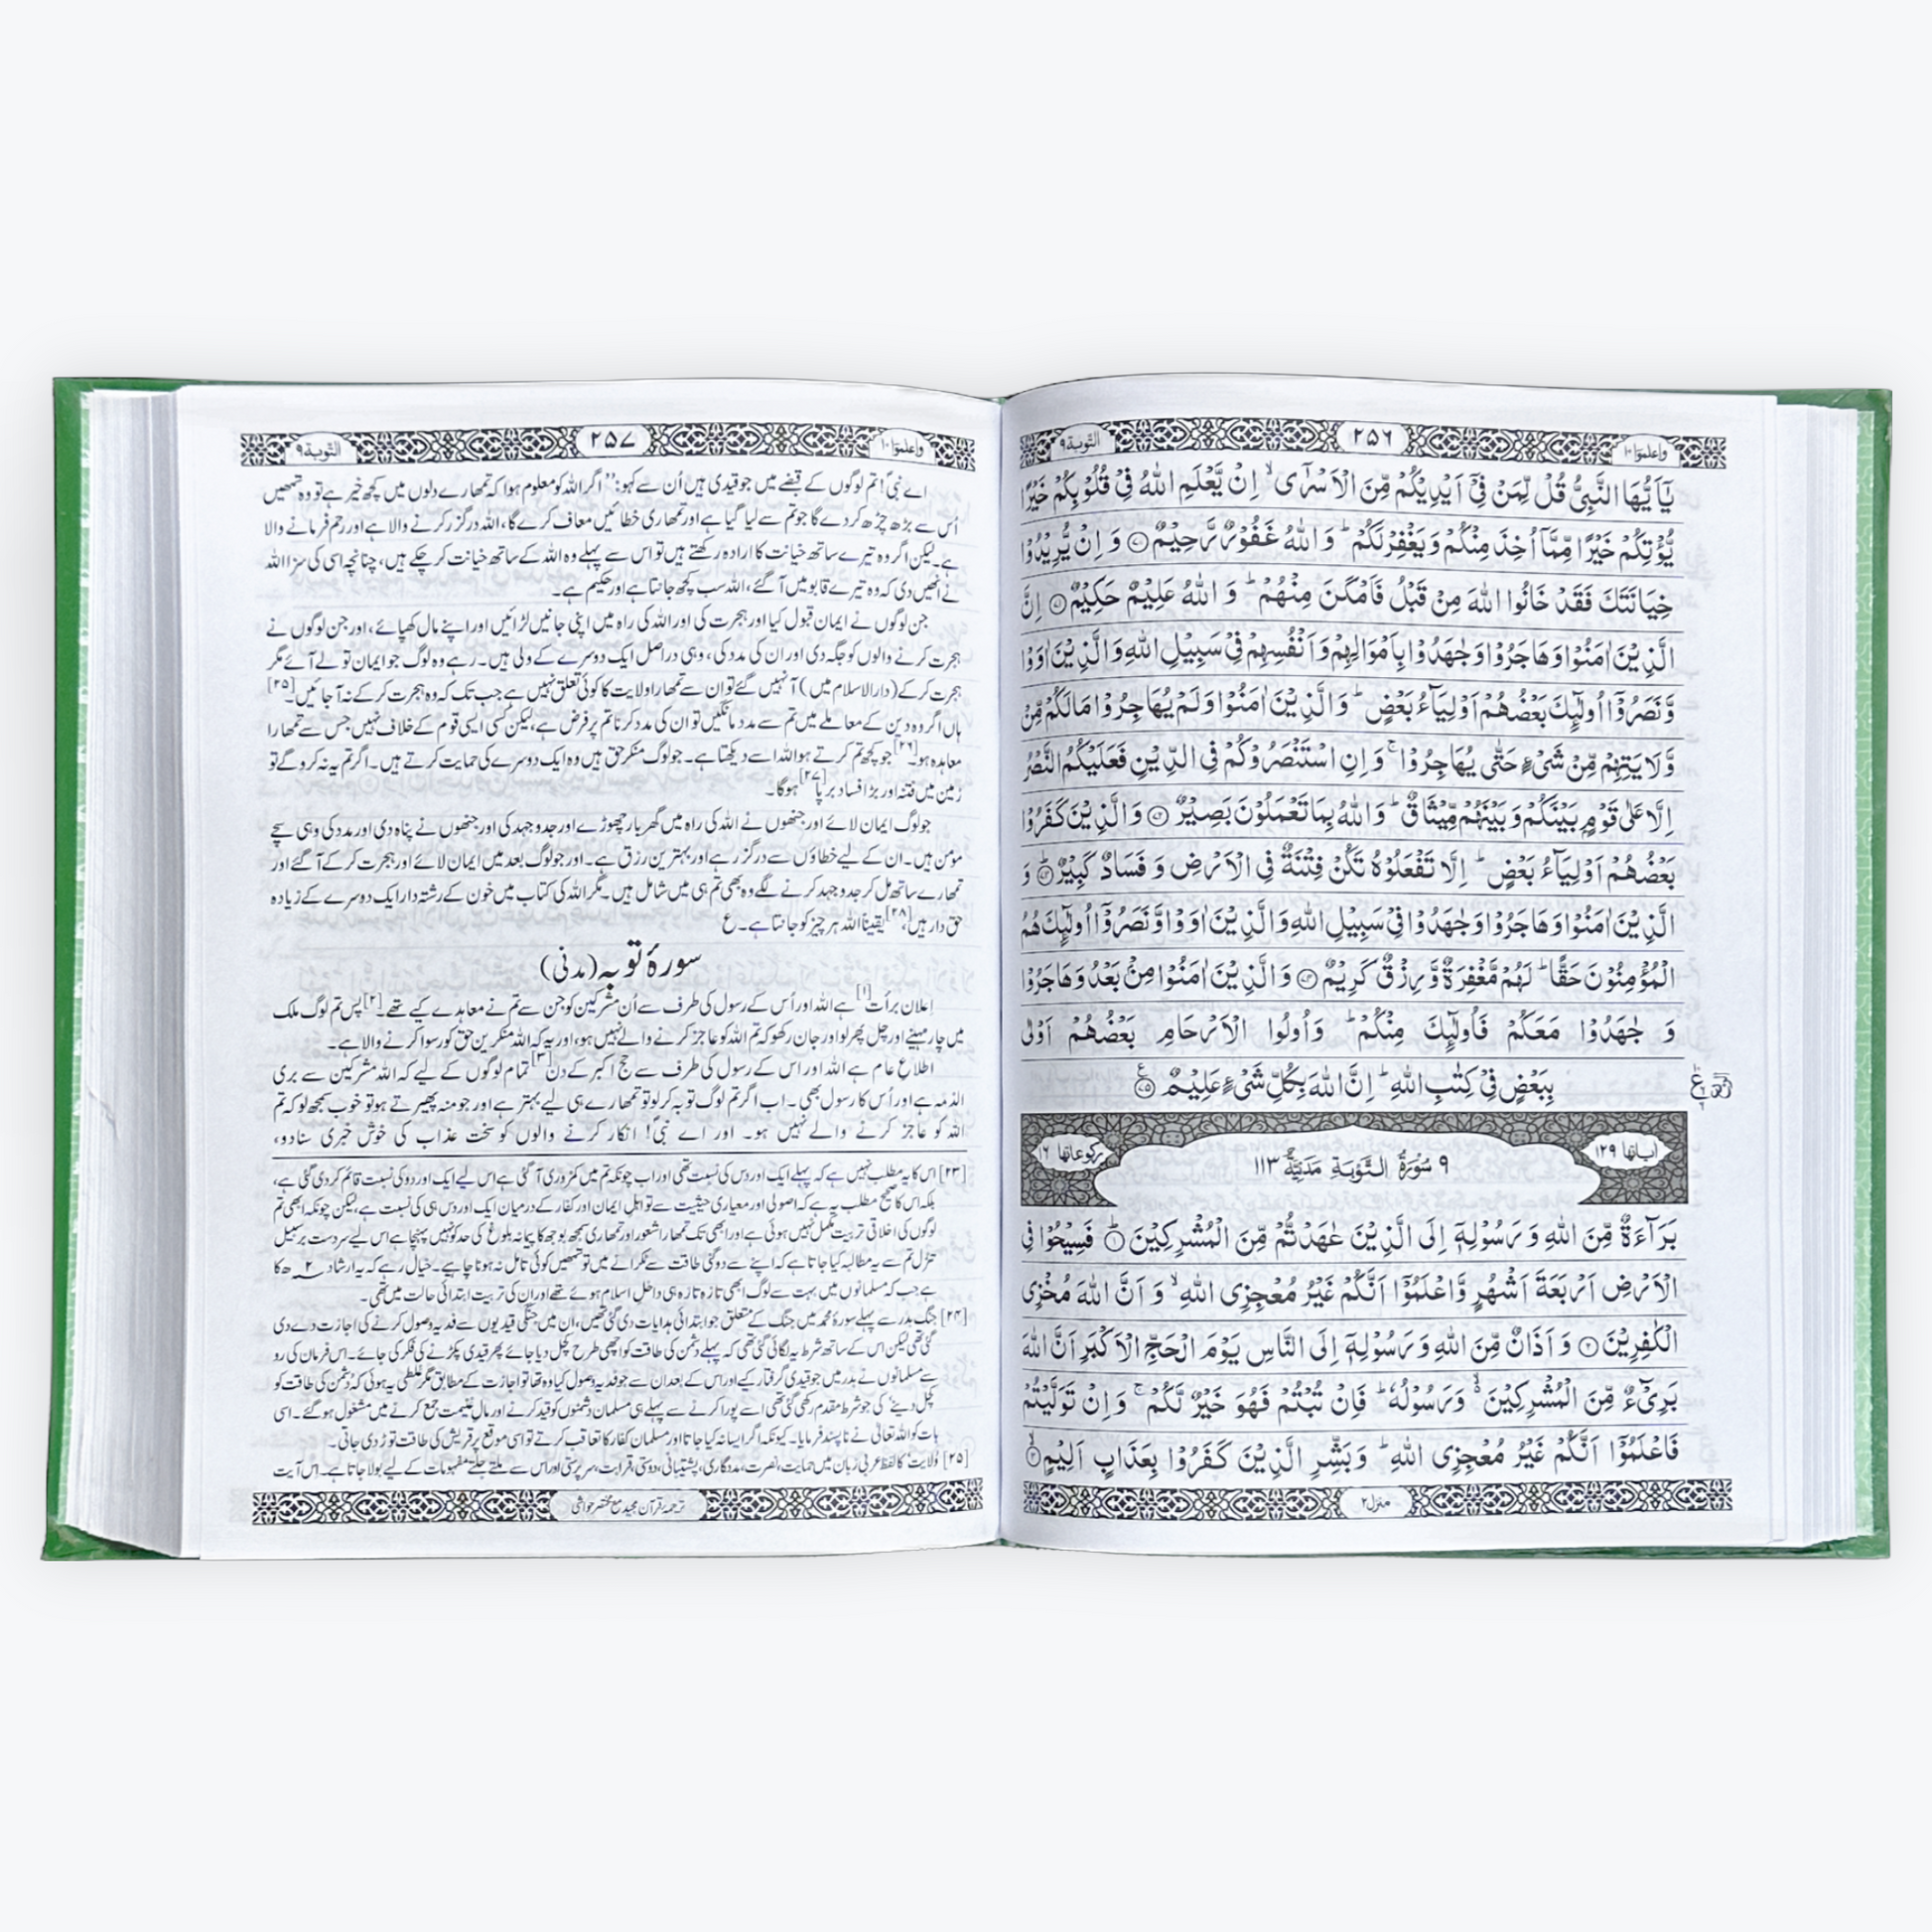 واعلموا ۱۰
۲۵۶
التوبة ۹
يٰۤاَيُّهَا النَّبِىُّ قُلْ لِّمَنْ فِىْۤ اَيْدِيْكُمْ مِّنَ الْاَسْرٰٓى ۙ اِنْ يَّعْلَمِ اللّٰهُ فِىْ قُلُوْبِكُمْ خَيْرًا
يُّؤْتِكُمْ خَيْرًا مِّمَّاۤ اُخِذَ مِنْكُمْ وَيَغْفِرْ لَكُمْ ؕ وَاللّٰهُ غَفُوْرٌ رَّحِيْمٌ ﴿۷۰﴾ وَاِنْ يُّرِيْدُوْا
خِيَانَتَكَ فَقَدْ خَانُوا اللّٰهَ مِنْ قَبْلُ فَاَمْكَنَ مِنْهُمْ ؕ وَاللّٰهُ عَلِيْمٌ حَكِيْمٌ ﴿۷۱﴾ اِنَّ
الَّذِيْنَ اٰمَنُوْا وَهَاجَرُوْا وَجٰهَدُوْا بِاَمْوَالِهِمْ وَاَنْفُسِهِمْ فِىْ سَبِيْلِ اللّٰهِ وَالَّذِيْنَ اٰوَوْا
وَّنَصَرُوْۤا اُولٰٓئِكَ بَعْضُهُمْ اَوْلِيَآءُ بَعْضٍ ؕ وَالَّذِيْنَ اٰمَنُوْا وَلَمْ يُهَاجِرُوْا مَا لَكُمْ مِّنْ
وَّلَايَتِهِمْ مِّنْ شَىْءٍ حَتّٰى يُهَاجِرُوْا ۚ وَاِنِ اسْتَنْصَرُوْكُمْ فِى الدِّيْنِ فَعَلَيْكُمُ النَّصْرُ
اِلَّا عَلٰى قَوْمٍۭ بَيْنَكُمْ وَبَيْنَهُمْ مِّيْثَاقٌ ؕ وَاللّٰهُ بِمَا تَعْمَلُوْنَ بَصِيْرٌ ﴿۷۲﴾ وَالَّذِيْنَ كَفَرُوْا
بَعْضُهُمْ اَوْلِيَآءُ بَعْضٍ ؕ اِلَّا تَفْعَلُوْهُ تَكُنْ فِتْنَةٌ فِى الْاَرْضِ وَفَسَادٌ كَبِيْرٌ ﴿۷۳﴾ وَ
الَّذِيْنَ اٰمَنُوْا وَهَاجَرُوْا وَجٰهَدُوْا فِىْ سَبِيْلِ اللّٰهِ وَالَّذِيْنَ اٰوَوْا وَّنَصَرُوْۤا اُولٰٓئِكَ هُمُ
الْمُؤْمِنُوْنَ حَقًّا ؕ لَهُمْ مَّغْفِرَةٌ وَّرِزْقٌ كَرِيْمٌ ﴿۷۴﴾ وَالَّذِيْنَ اٰمَنُوْا مِنْۢ بَعْدُ وَهَاجَرُوْا
وَ جٰهَدُوْا مَعَكُمْ فَاُولٰٓئِكَ مِنْكُمْ ؕ وَاُولُوا الْاَرْحَامِ بَعْضُهُمْ اَوْلٰى
بِبَعْضٍ فِىْ كِتٰبِ اللّٰهِ ؕ اِنَّ اللّٰهَ بِكُلِّ شَىْءٍ عَلِيْمٌ ﴿۷۵﴾
اٰیاتها ۱۲۹
۹ سُوْرَةُ التَّوْبَةِ مَدَنِيَّةٌ ۱۱۳
رکوعاتها ۱۶
بَرَآءَةٌ مِّنَ اللّٰهِ وَرَسُوْلِهٖۤ اِلَى الَّذِيْنَ عٰهَدْتُّمْ مِّنَ الْمُشْرِكِيْنَ ﴿۱﴾ فَسِيْحُوْا فِى
الْاَرْضِ اَرْبَعَةَ اَشْهُرٍ وَّاعْلَمُوْۤا اَنَّكُمْ غَيْرُ مُعْجِزِى اللّٰهِ ۙ وَاَنَّ اللّٰهَ مُخْزِى
الْكٰفِرِيْنَ ﴿۲﴾ وَاَذَانٌ مِّنَ اللّٰهِ وَرَسُوْلِهٖۤ اِلَى النَّاسِ يَوْمَ الْحَجِّ الْاَكْبَرِ اَنَّ اللّٰهَ
بَرِىْٓءٌ مِّنَ الْمُشْرِكِيْنَ ۙ وَرَسُوْلُهٗ ؕ فَاِنْ تُبْتُمْ فَهُوَ خَيْرٌ لَّكُمْ ۚ وَاِنْ تَوَلَّيْتُمْ
فَاعْلَمُوْۤا اَنَّكُمْ غَيْرُ مُعْجِزِى اللّٰهِ ؕ وَبَشِّرِ الَّذِيْنَ كَفَرُوْا بِعَذَابٍ اَلِيْمٍ ﴿۳﴾
منزل ۲
واعلموا ۱۰
۲۵۷
التوبة ۹
اے نبیؐ! تم لوگوں کے قبضے میں جو قیدی ہیں اُن سے کہو: ’’اگر اللہ کو معلوم ہوا کہ تمھارے دلوں میں کچھ خیر ہے تو وہ تمھیں
اُس سے بڑھ چڑھ کر دے گا جو تم سے لیا گیا ہے اور تمھاری خطائیں معاف کرے گا، اللہ درگزر کرنے والا ہے اور رحم فرمانے والا
ہے۔ لیکن اگر وہ تیرے ساتھ خیانت کا ارادہ رکھتے ہیں تو اس سے پہلے وہ اللہ کے ساتھ خیانت کر چکے ہیں، چنانچہ اسی کی سزا اللہ
نے انھیں دی کہ وہ تیرے قابو میں آگئے، اللہ سب کچھ جانتا ہے اور حکیم ہے۔
جن لوگوں نے ایمان قبول کیا اور ہجرت کی اور اللہ کی راہ میں اپنی جانیں لڑائیں اور اپنے مال کھپائے، اور جن لوگوں نے
ہجرت کرنے والوں کو جگہ دی اور ان کی مدد کی، وہی دراصل ایک دوسرے کے ولی ہیں۔ رہے وہ لوگ جو ایمان تو لے آئے مگر
ہجرت کر کے (دارالاسلام میں) آ نہیں گئے تو ان سے تمھارا ولایت کا کوئی تعلق نہیں ہے جب تک کہ وہ ہجرت کر کے نہ آ جائیں۔[۲۵]
ہاں اگر وہ دین کے معاملے میں تم سے مدد مانگیں تو ان کی مدد کرنا تم پر فرض ہے، لیکن کسی ایسی قوم کے خلاف نہیں جس سے تمھارا
معاہدہ ہو۔[۲۶] جو کچھ تم کرتے ہو اللہ اسے دیکھتا ہے۔ جو لوگ منکرِ حق ہیں وہ ایک دوسرے کی حمایت کرتے ہیں۔ اگر تم یہ نہ کرو گے تو
زمین میں فتنہ اور بڑا فساد برپا[۲۷] ہوگا۔
جو لوگ ایمان لائے اور جنھوں نے اللہ کی راہ میں گھر بار چھوڑے اور جدوجہد کی اور جنھوں نے پناہ دی اور مدد کی وہی سچے
مومن ہیں۔ ان کے لیے خطاؤں سے درگزر ہے اور بہترین رزق ہے۔ اور جو لوگ بعد میں ایمان لائے اور ہجرت کر کے آگئے اور
تمھارے ساتھ مل کر جدوجہد کرنے لگے وہ بھی تم ہی میں شامل ہیں۔ مگر اللہ کی کتاب میں خون کے رشتہ دار ایک دوسرے کے زیادہ
حق دار ہیں،[۲۸] یقیناً اللہ ہر چیز کو جانتا ہے۔ ع
سورۂ توبہ (مدنی)
اعلان برأت[۱] ہے اللہ اور اُس کے رسول کی طرف سے اُن مشرکین کو جن سے تم نے معاہدے کیے تھے۔[۲] پس تم لوگ ملک
میں چار مہینے اور چل پھر لو اور جان رکھو کہ تم اللہ کو عاجز کرنے والے نہیں ہو، اور یہ کہ اللہ منکرین حق کو رسوا کرنے والا ہے۔
اطلاعِ عام ہے اللہ اور اس کے رسول کی طرف سے حج اکبر کے دن[۳] تمام لوگوں کے لیے کہ اللہ مشرکین سے بری
الذمہ ہے اور اُس کا رسول بھی۔ اب اگر تم لوگ توبہ کر لو تو تمھارے ہی لیے بہتر ہے اور جو منہ پھیرتے ہو تو خوب سمجھ لو کہ تم
اللہ کو عاجز کرنے والے نہیں ہو۔ اور اے نبیؐ! انکار کرنے والوں کو سخت عذاب کی خوش خبری سنا دو،
[۲۳] اس کا یہ مطلب نہیں ہے کہ پہلے ایک اور دس کی نسبت تھی اور اب چونکہ تم میں کمزوری آ گئی ہے اس لیے ایک اور دو کی نسبت قائم کر دی گئی ہے،
بلکہ اس کا صحیح مطلب یہ ہے کہ اصولی اور معیاری حیثیت سے تو اہلِ ایمان اور کفار کے درمیان ایک اور دس ہی کی نسبت ہے، لیکن چونکہ ابھی تم
لوگوں کی اخلاقی تربیت مکمل نہیں ہوئی ہے اور ابھی تک تمھارا شعور اور تمھاری سمجھ بوجھ کا پیمانہ بلوغ کی حد کو نہیں پہنچا ہے اس لیے سردست برسبیل
تنزل تم سے یہ مطالبہ کیا جاتا ہے کہ اپنے سے دوگنی طاقت سے ٹکرانے میں تو تمھیں کوئی تامل نہ ہونا چاہیے۔ خیال رہے کہ یہ ارشاد ۲ھ کا
ہے جب کہ مسلمانوں میں بہت سے لوگ ابھی تازہ تازہ ہی داخلِ اسلام ہوئے تھے اور ان کی تربیت ابتدائی حالت میں تھی۔
[۲۴] جنگ بدر سے پہلے سورۂ محمد میں جنگ کے متعلق جو ابتدائی ہدایات دی گئی تھیں، ان میں جنگی قیدیوں سے فدیہ وصول کرنے کی اجازت دے دی
گئی تھی لیکن اس کے ساتھ شرط یہ لگائی گئی تھی کہ پہلے دشمن کی طاقت کو اچھی طرح کچل دیا جائے پھر قیدی پکڑنے کی فکر کی جائے۔ اس فرمان کی رو
سے مسلمانوں نے بدر میں جو قیدی گرفتار کیے اور اس کے بعد ان سے جو فدیہ وصول کیا وہ تھا تو اجازت کے مطابق مگر غلطی یہ ہوئی کہ دشمن کی طاقت کو
کچل دینے کی جو شرط مقدم رکھی گئی تھی اسے پورا کرنے سے پہلے ہی مسلمان دشمنوں کو قید کرنے اور مالِ غنیمت جمع کرنے میں مشغول ہو گئے۔ اسی
بات کو اللہ تعالیٰ نے ناپسند فرمایا۔ کیونکہ اگر ایسا نہ کیا جاتا اور مسلمان کفار کا تعاقب کرتے تو اسی موقع پر قریش کی طاقت توڑ دی جاتی۔
[۲۵] ’ولایت‘ کا لفظ عربی زبان میں حمایت، نصرت، مددگاری، پشتیبانی، دوستی، قرابت، سرپرستی اور اس سے ملتے جلتے مفہومات کے لیے بولا جاتا ہے۔ اِس آیت
ترجمۂ قرآن مجید مع مختصر حواشی